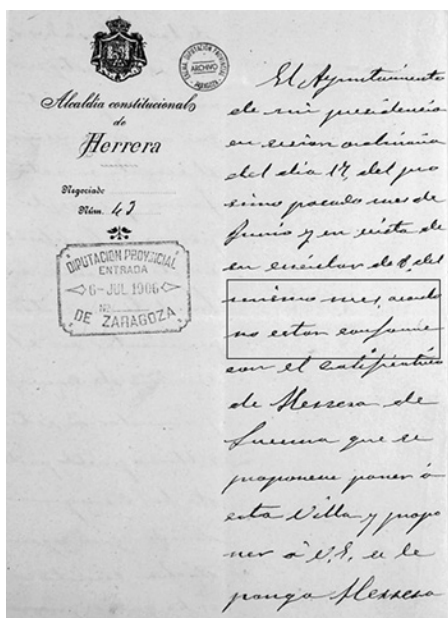 Alcaldía constitucional
de
Herrera
Negociado
Núm. 43
DIPUTACION PROVINCIAL
ARCHIVO
ZARAGOZA
DIPUTACION PROVINCIAL
ENTRADA
6-JUL 1906
Nº
DE ZARAGOZA
El Ayuntamiento
de mi presidencia
en sesion ordinaria
del dia 17, del pro
simo pasado mes de
Junio y en vista de
su circular de 8, del
mismo mes, acordó
no estar conforme
con el calificativo
de Herrera de
que se
propone poner á
esta Villa y propo
ner á V.E. se le
ponga Herrera